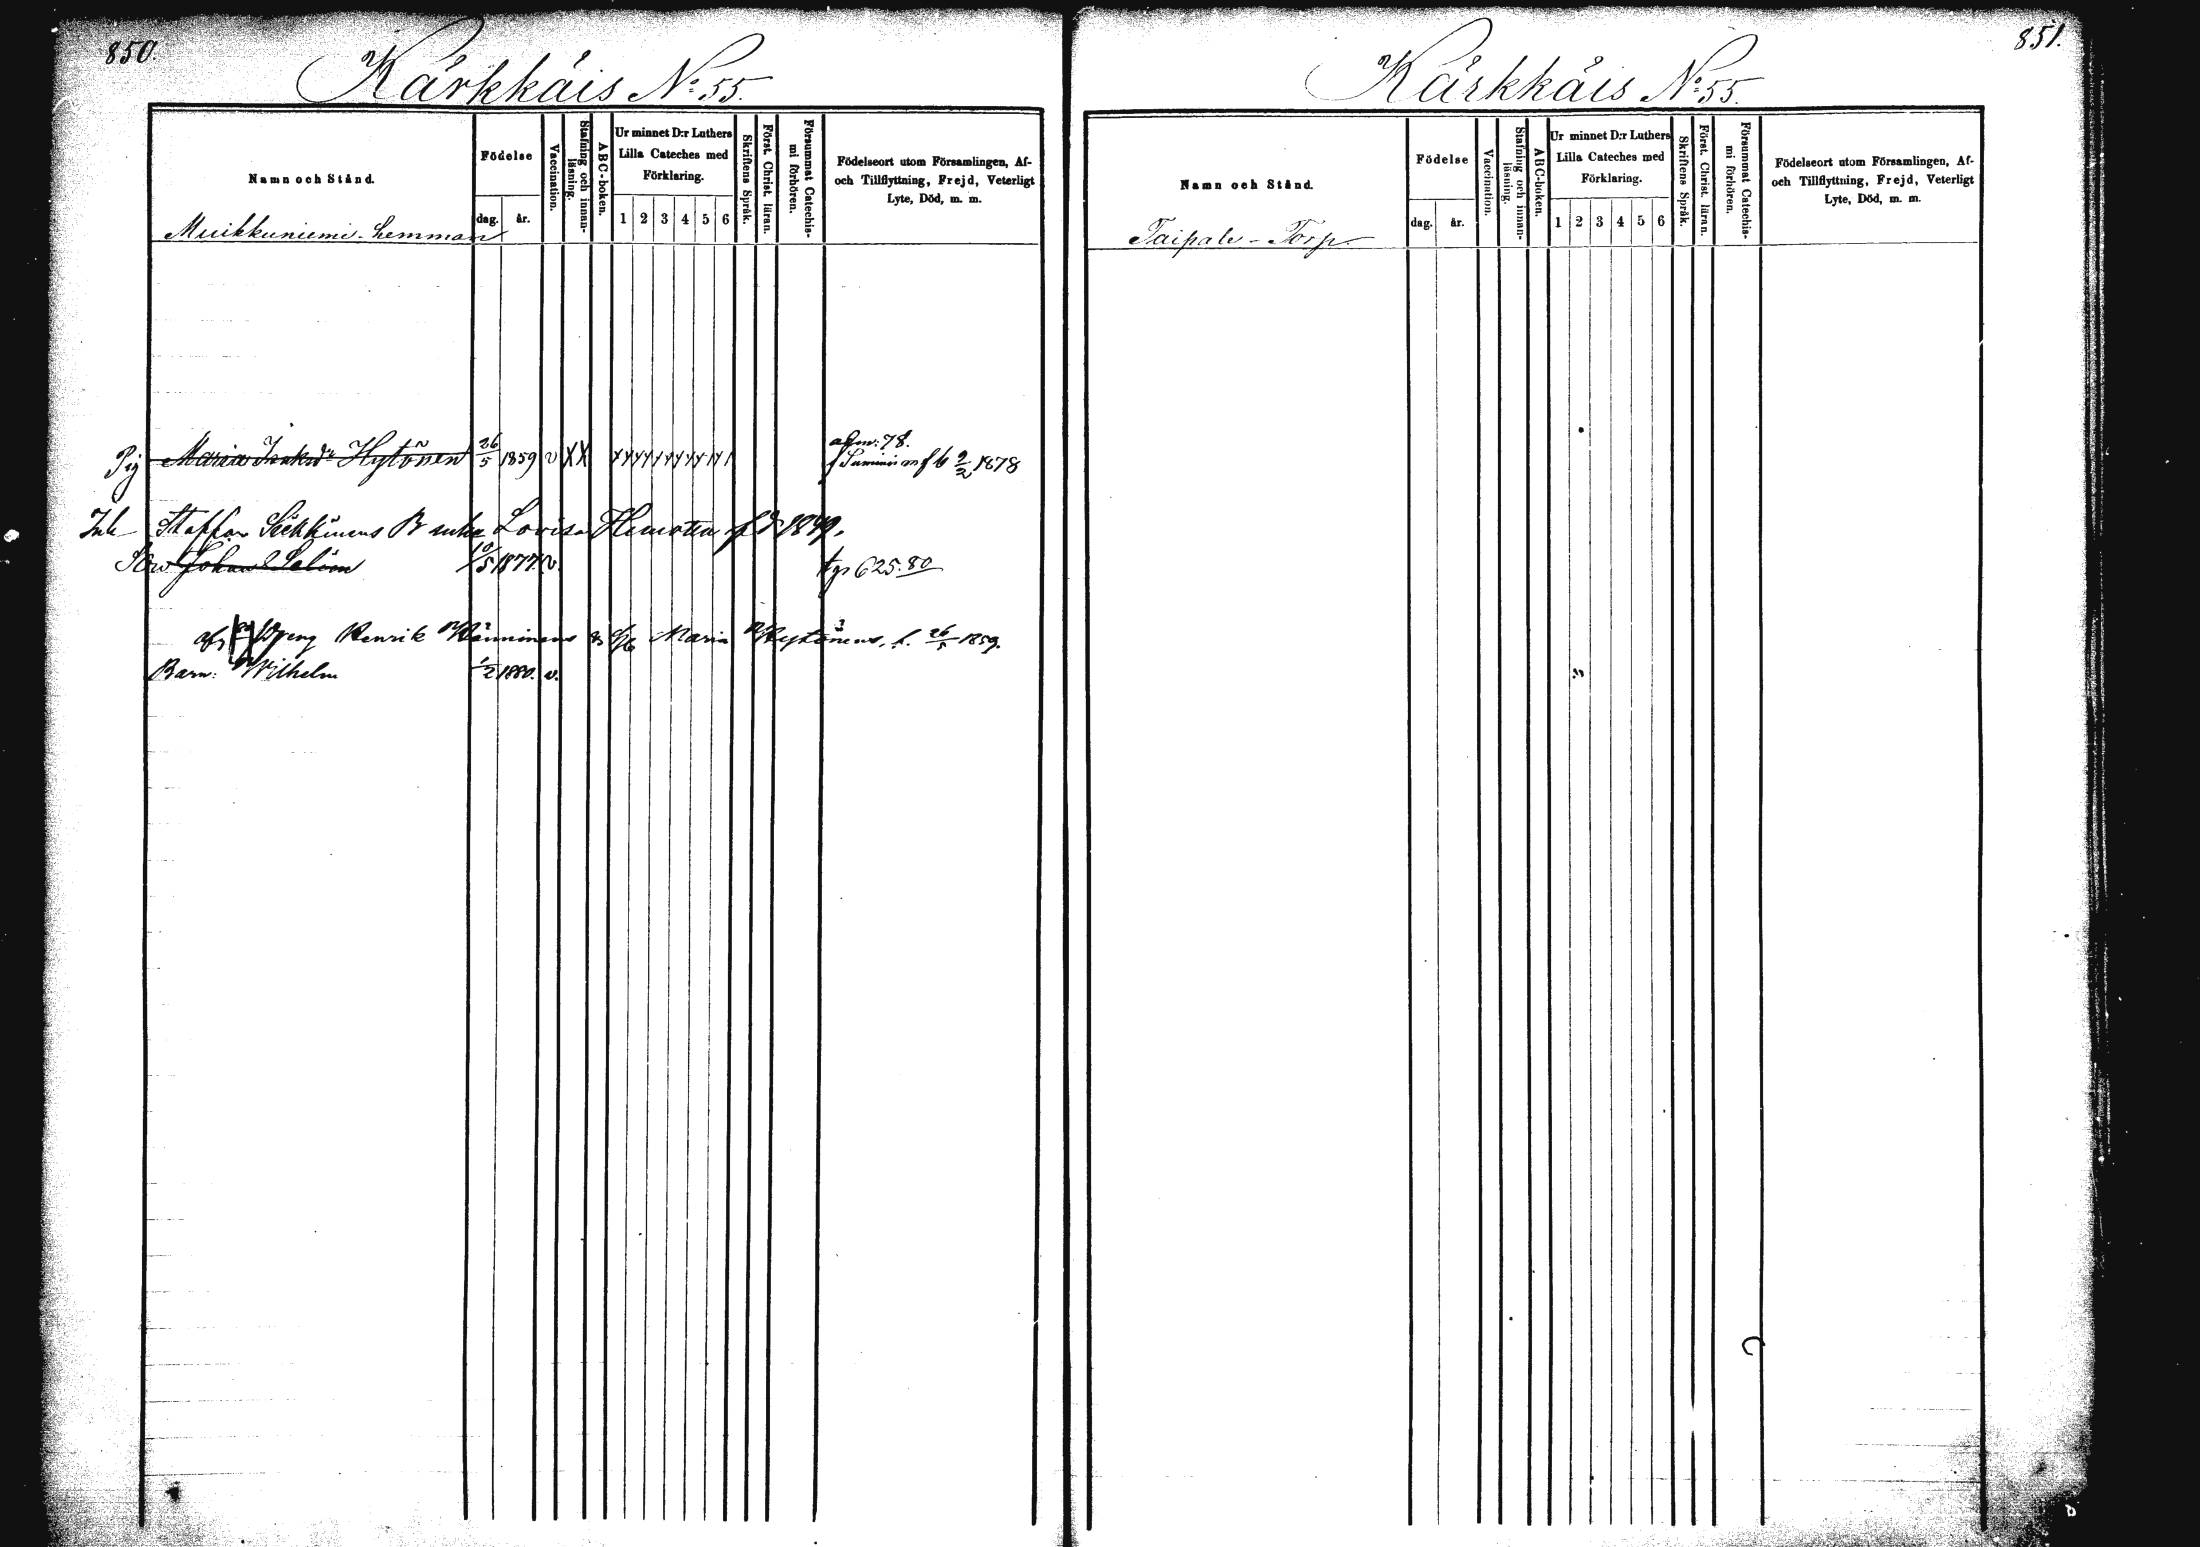 850.
Kärkkäis No: 55.
Namn och Stånd.
Födelse
dag. år.
Vaccination.
Stafning och innan-
läsning.
ABC-boken.
Ur minnet D:r Luthers
Lilla Cateches med
Förklaring.
1 2 3 4 5 6
Skriftens Språk.
Först. Christ. läran.
Försummat Catechis-
mi förhören.
Födelseort utom Församlingen, Af-
och Tillflyttning, Frejd, Veterligt
Lyte, Död, m. m.
Muikkuniemi hemman
adm: 78.
Pig Maria Hytönen 26/5 1859 v XX f b 9/2 1878
Inh Staffan Lovisa f 1849.
Johan 10/5 1877. v. 625.80
Dreng Henrik Maria Hytönens, f. 26/5 1859.
Barn: Wilhelm 1/2 1880. v.
851.
Kärkkäis No: 55.
Namn och Stånd.
Födelse
dag. år.
Vaccination.
Stafning och innan-
läsning.
ABC-boken.
Ur minnet D:r Luthers
Lilla Cateches med
Förklaring.
1 2 3 4 5 6
Skriftens Språk.
Först. Christ. läran.
Försummat Catechis-
mi förhören.
Födelseort utom Församlingen, Af-
och Tillflyttning, Frejd, Veterligt
Lyte, Död, m. m.
Taipale - Torp